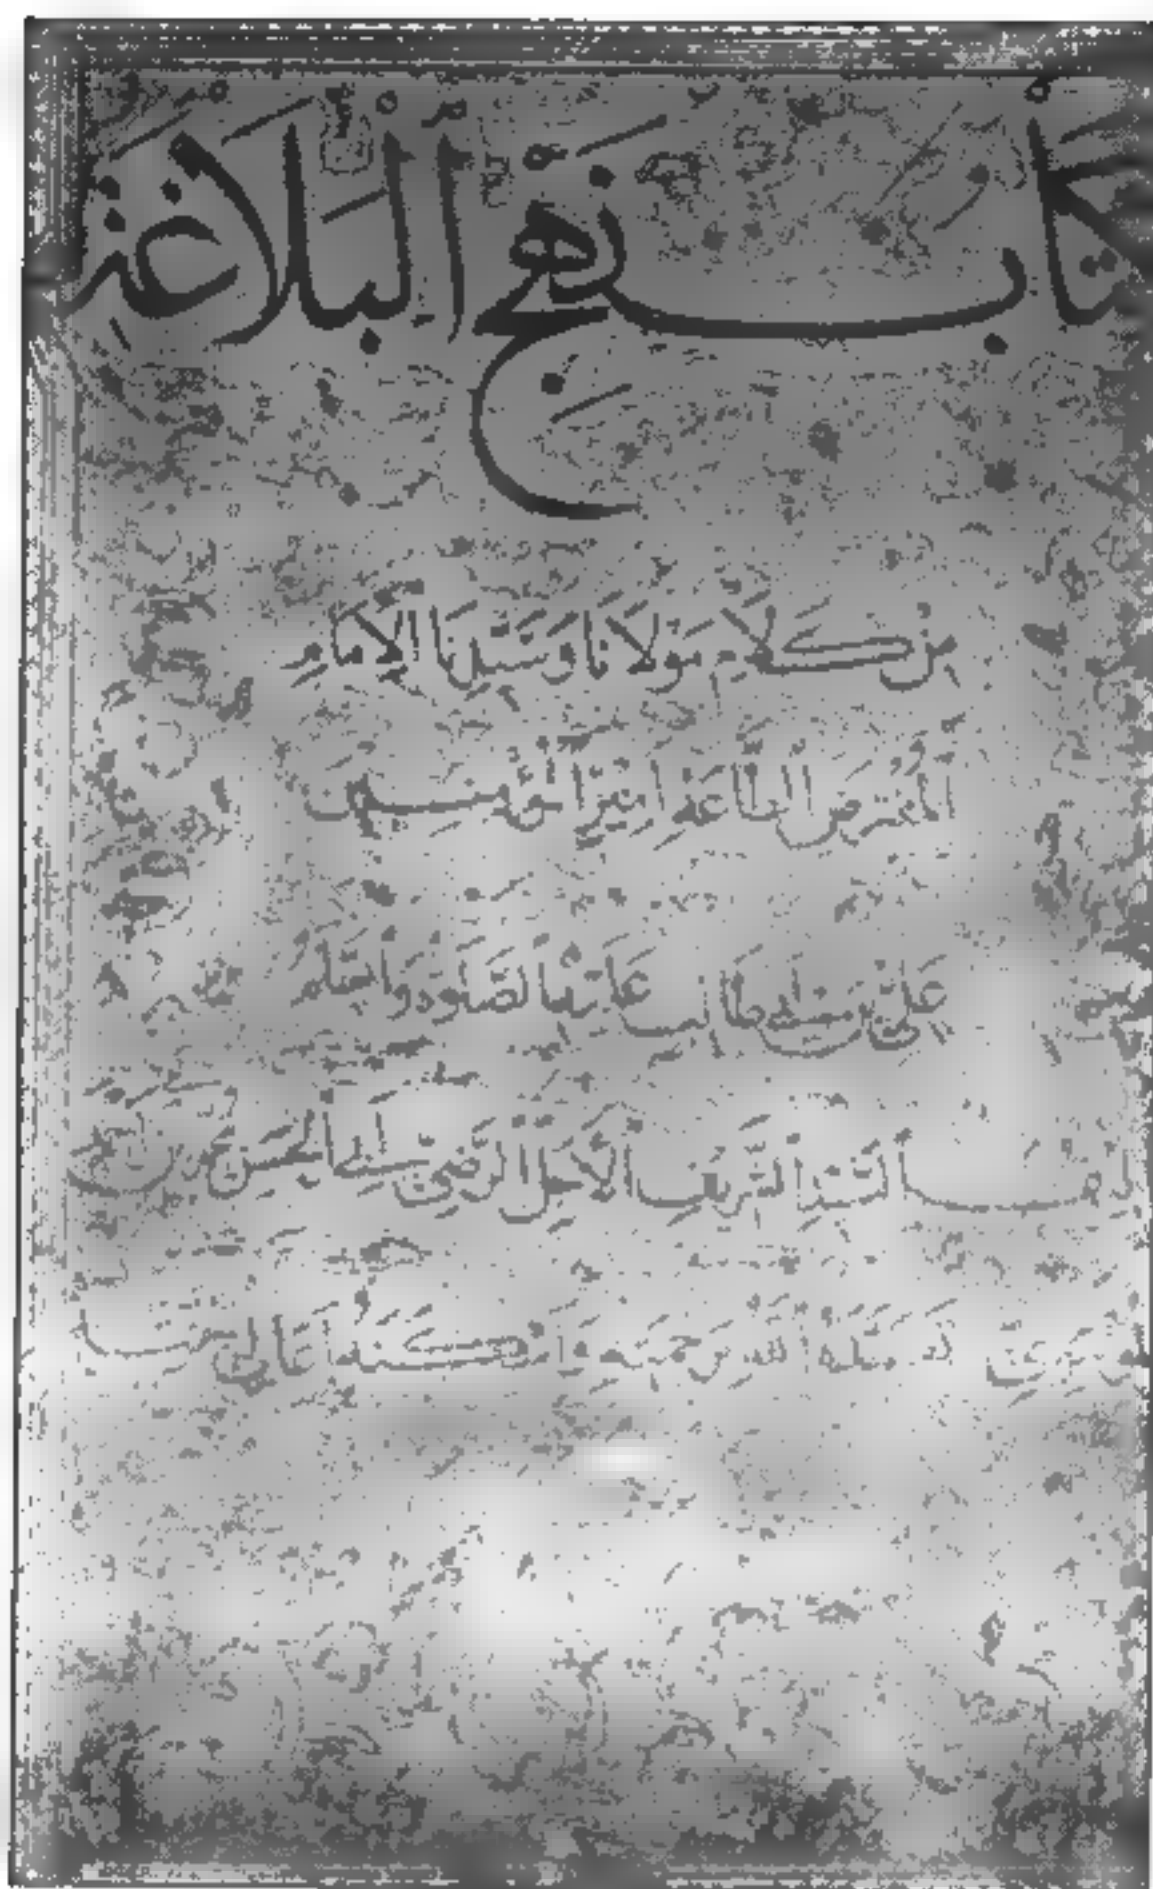 كتاب نهج البلاغة
من كلام مولانا وسيدنا الإمام
المفترض الطاعة امير المؤمنين
علي بن ابي طالب عليه الصلوة والسلم
السيد الشريف الأجل الرضي ابي الحسن محمد بن
الله برحمته واسكنه اعالي